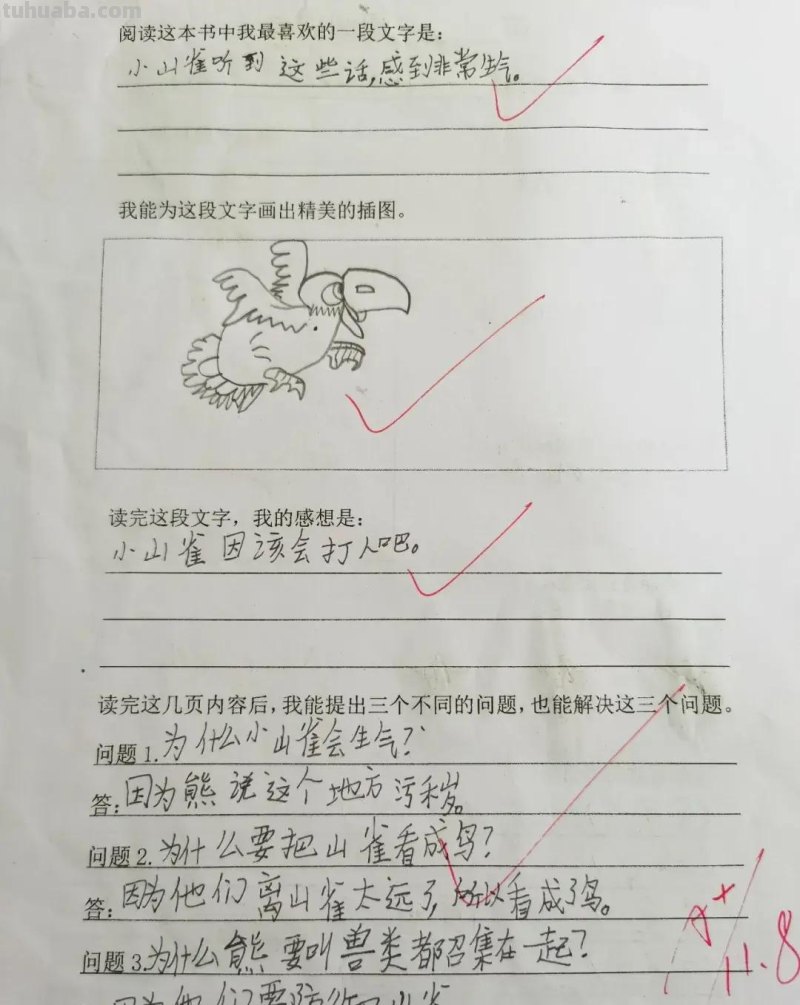 tuhuaba.com
阅读这本书中我最喜欢的一段文字是：
小山雀听到这些话，感到非常生气。
我能为这段文字画出精美的插图。
读完这段文字，我的感想是：
小山雀因该会打人吧。
读完这几页内容后，我能提出三个不同的问题，也能解决这三个问题。
问题1.为什么小山雀会生气？
答：因为熊说这个地方污秽。
问题2.为什么要把山雀看成鸟？
答：因为他们离山雀太远了，所以看成了鸟。
问题3.为什么熊要叫兽类都召集在一起？
因为他们要防
A+
11.8